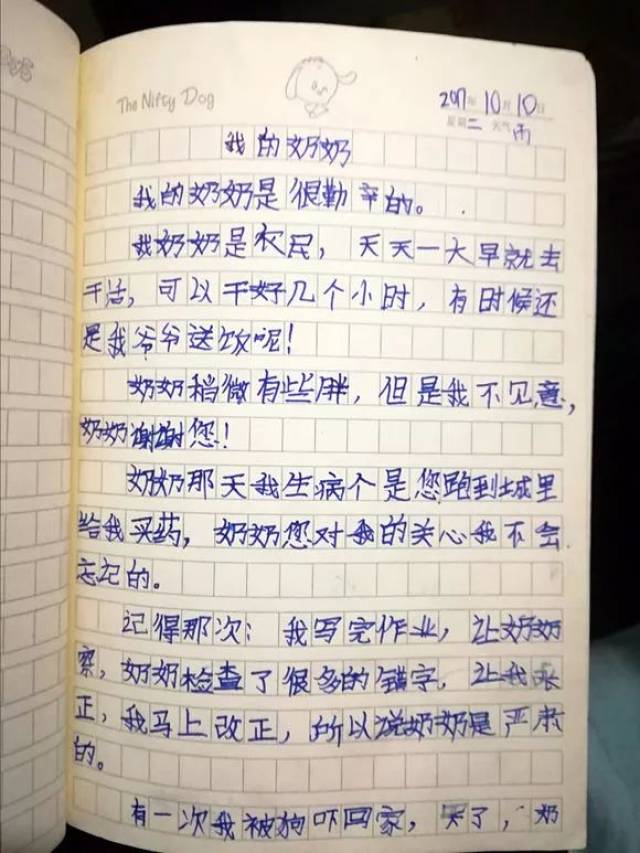 The Nifty Dog
2017年10月10日
星期二 天气雨
我的奶奶
我的奶奶是很勤辛的。
我奶奶是农民，天天一大早就去
干活，可以干好几个小时，有时候还
是我爷爷送饭呢！
奶奶稍微有些胖，但是我不见意，
奶奶谢谢您！
奶奶那天我生病个是您跑到城里
给我买药，奶奶您对我的关心我不会
忘记的。
记得那次：我写完作业，让奶奶
察，奶奶检查了很多的错字，让我
正，我马上改正，所以说奶奶是严肃
的。
有一次我被狗吓回家，了，奶